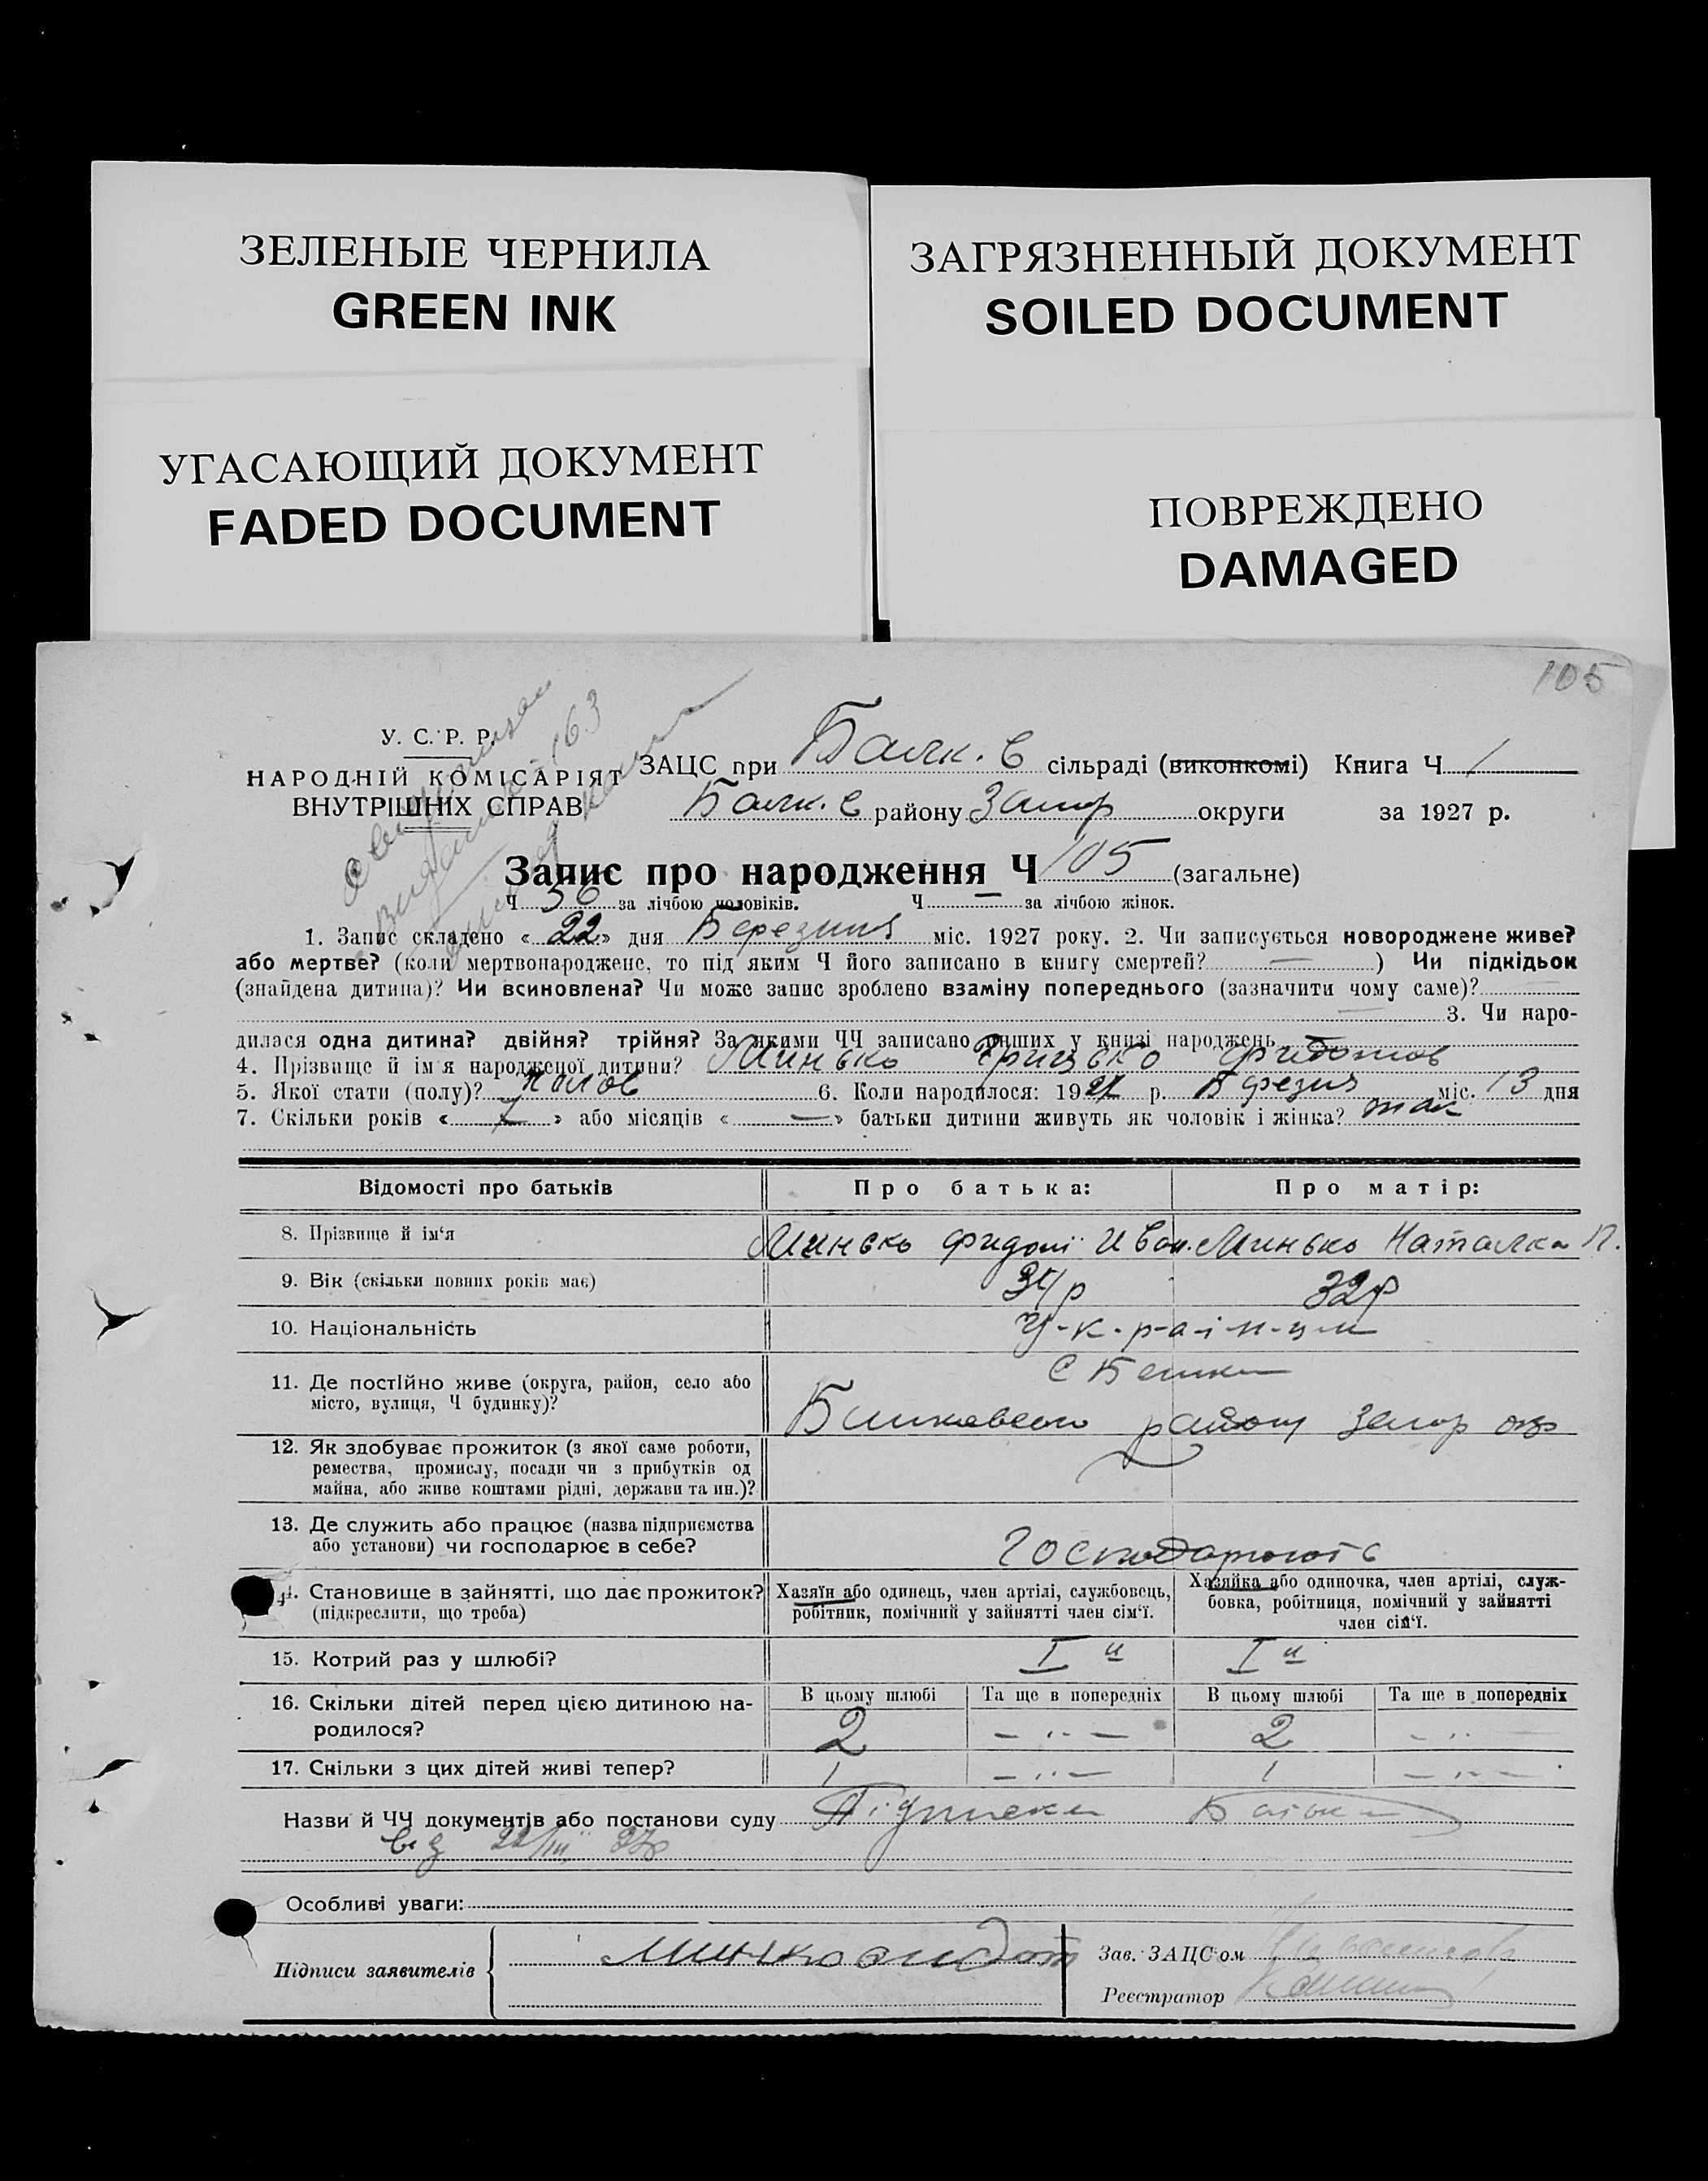 ЗЕЛЕНЫЕ ЧЕРНИЛА
GREEN INK
ЗАГРЯЗНЕННЫЙ ДОКУМЕНТ
SOILED DOCUMENT
УГАСАЮЩИЙ ДОКУМЕНТ
FADED DOCUMENT
ПОВРЕЖДЕНО
DAMAGED
105
У. С. Р. Р.
НАРОДНІЙ КОМІСАРІЯТ
ВНУТРІШНІХ СПРАВ
ЗАЦС при Балк. в сільраді (виконкомі) Книга Ч 1
Балк. в району Запор округи за 1927 р.
Запис про народження Ч 105 (загальне)
Ч 56 за лічбою чоловіків. Ч — за лічбою жінок.
1. Запис складено « 22 » дня Березня міс. 1927 року. 2. Чи записується новороджене живе?
або мертве? (коли мертвонароджене, то під яким Ч його записано в книгу смертей? — ) Чи підкідьок
(знайдена дитина)? Чи всиновлена? Чи може запис зроблено взаміну попереднього (зазначити чому саме)?
3. Чи наро-
дилася одна дитина? двійня? трійня? За якими ЧЧ записано инших у книзі народжень
4. Прізвище й ім'я народженої дитини? Минько Грицько Фидотов
5. Якої стати (полу)? чолов 6. Коли народилося: 1927 р. Березня міс. 13 дня
7. Скільки років « 7 » або місяців « — » батьки дитини живуть як чоловік і жінка? так
Відомості про батьків
Про батька:
Про матір:
8. Прізвище й ім'я
Минько Фидот Иван.
Минько Наталка П.
9. Вік (скільки повних років має)
34 р
32 р
10. Національність
У-к-р-а-ї-н-ц-и
11. Де постійно живе (округа, район, село або
місто, вулиця, Ч будинку)?
с Балки
Балковсько району Запор окр
12. Як здобуває прожиток (з якої саме роботи,
ремества, промислу, посади чи з прибутків од
майна, або живе коштами рідні, держави та ин.)?
13. Де служить або працює (назва підприємства
або установи) чи господарює в себе?
Господарюють
14. Становище в зайнятті, що дає прожиток?
(підкреслити, що треба)
Хазяїн або одинець, член артілі, службовець,
робітник, помічний у зайнятті член сім'ї.
Хазяйка або одиночка, член артілі, служ-
бовка, робітниця, помічний у зайнятті
член сім'ї.
15. Котрий раз у шлюбі?
I й
I й
16. Скільки дітей перед цією дитиною на-
родилося?
В цьому шлюбі
Та ще в попередніх
В цьому шлюбі
Та ще в попередніх
2
— „ —
2
— „ —
17. Скільки з цих дітей живі тепер?
1
— „ —
1
— „ —
Назви й ЧЧ документів або постанови суду Підписка Батька
від 22/III 27р
Особливі уваги:
Підписи заявителів
Минько Фидот
Зав. ЗАЦС'ом
Реєстратор